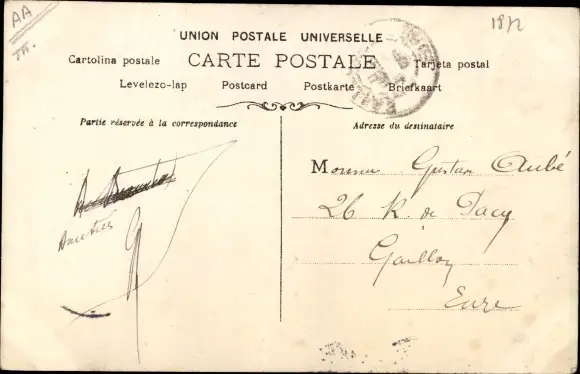 AA
18/2
UNION POSTALE UNIVERSELLE
CARTE POSTALE
Cartolina postale
Tarjeta postal
Levelezo-lap Postcard Postkarte Briefkaart
Partie réservée à la correspondance
Adresse du destinataire
Amitiés
Monsieur Gustave Aubé
26 R. de Pacy
Gaillon
Eure